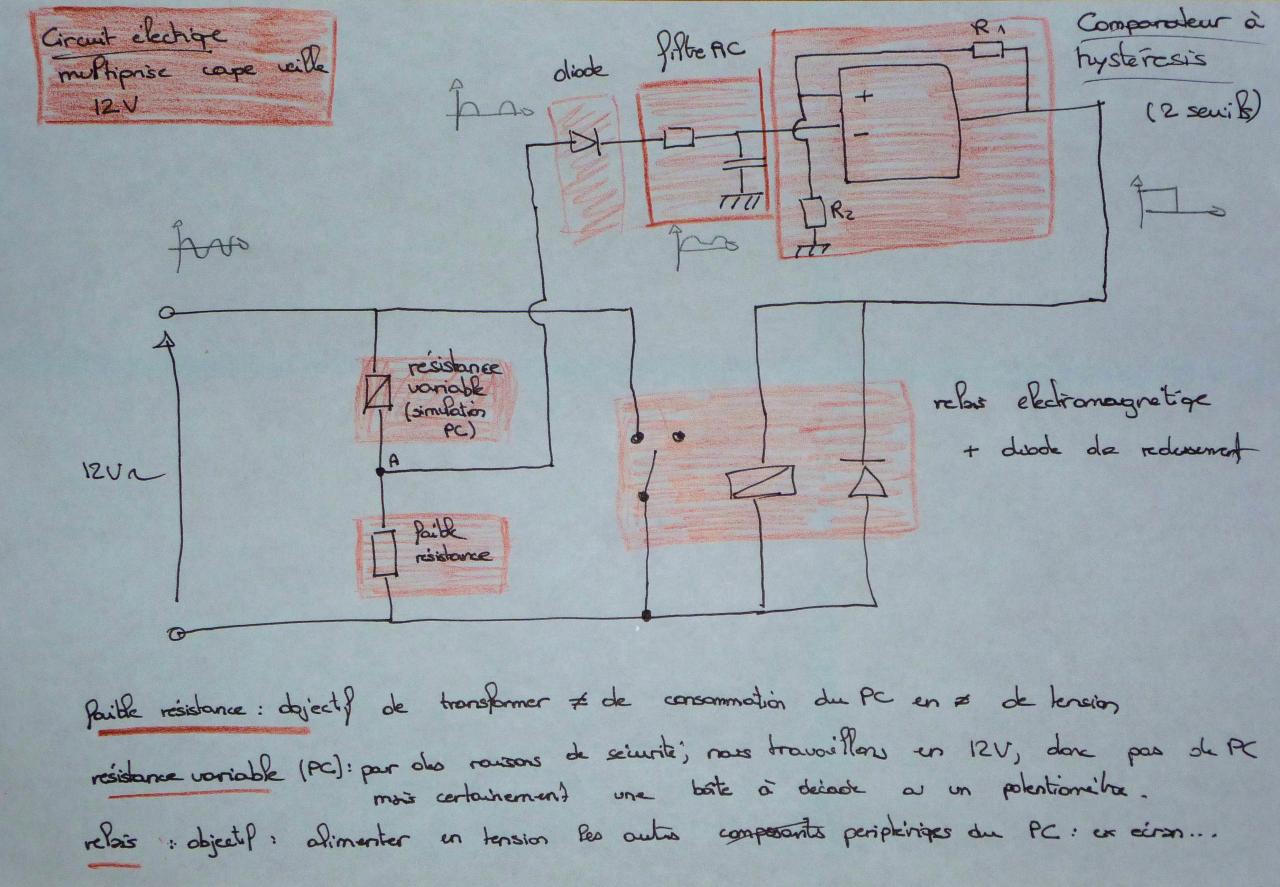 Circuit électriqe
multiprise coupe veille
12V
diode
filtre RC
R1
Comparateur à
hystérésis
(2 seuils)
+
-
R2
résistance
variable
(simulation
PC)
A
12V~
faible
résistance
relais electromagnétiqe
+ diode de redressement
faible résistance : objectif de transformer ≠ de consommation du PC en ≠ de tension
résistance variable (PC) : par des raisons de sécurité, nous travaillons en 12V, donc pas de PC
mais certainement une boîte à décade ou un potentiomètre.
relais : objectif : alimenter en tension les autres composants periphériqes du PC : ex écran...